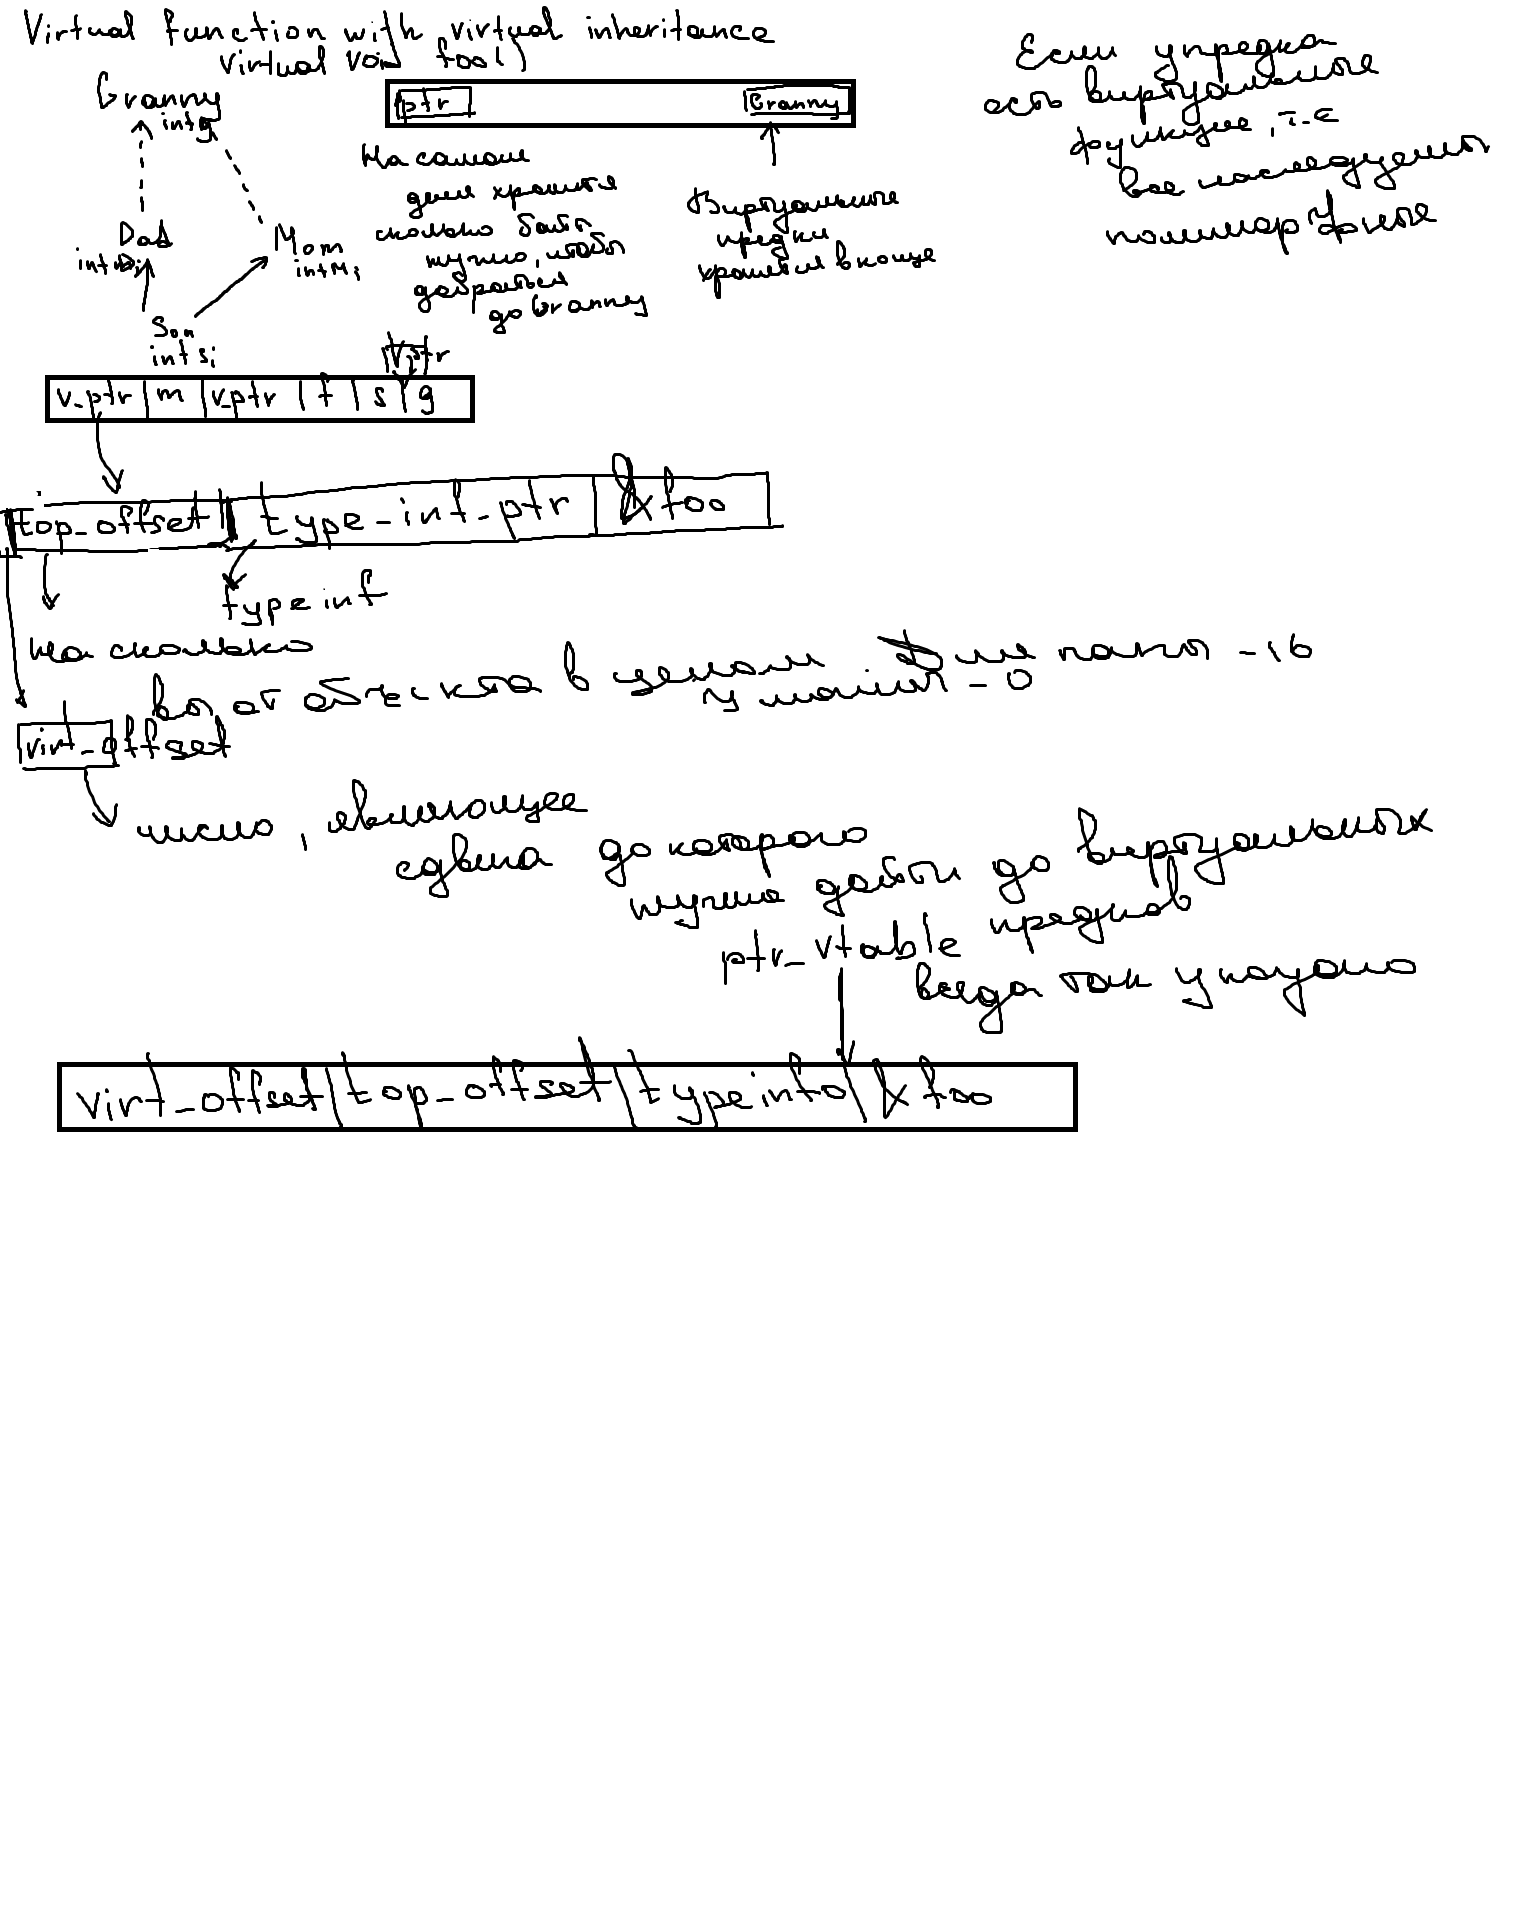 Virtual function with virtual inheritance
virtual void foo()
Granny
int g
Dad
int D;
Mom
int M;
Son
int s;
ptr
Granny
На самом
деле хранится
сколько байт
нужно, чтобы
добраться
до Granny
Виртуальные
предки
хранятся в конце
Если у предка
есть виртуальные
функции, т.е
все наследующиеся
полиморфные
Vptr
v_ptr | m | v_ptr | f | s | g
top_offset | type_inf_ptr | &foo
typeinf
На сколько
вы от объекта в целом Для папы -16
У мамы - 0
virt_offset
число, являющее
сдвига до которого
нужно дойти до виртуальных
предков
ptr_vtable
всегда так указано
virt_offset | top_offset | typeinfo | &foo